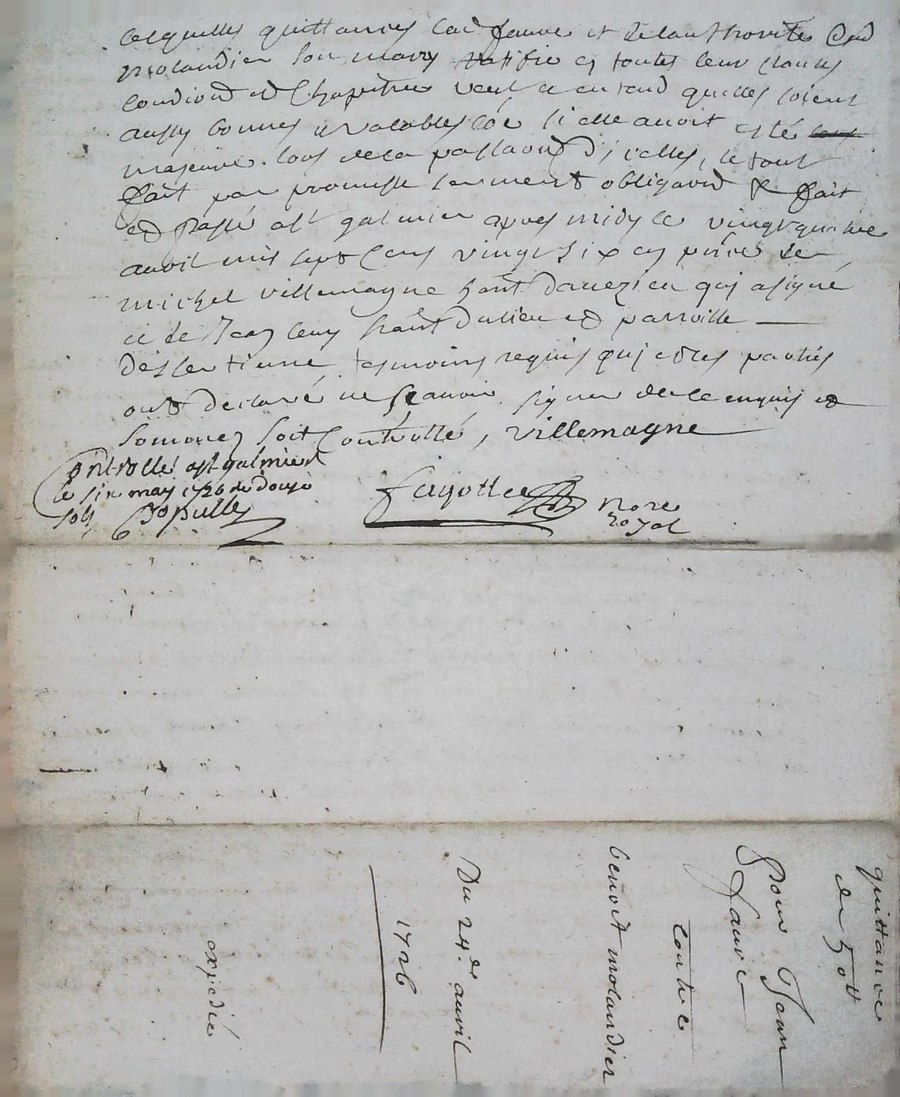 lesquelles quittances lad faure et de lauthorité dud
molandier son mary ratifie en toutes leur clauses
condions et chapitres veut et entend quelles soient
aussy bonnes et valables coe si elle avoit esté
majeure lors de la passaon dicelles, le tout
fait par promesse serment obligaons & fait
et passé a st galmier apres midy le vingtquatre
avril mil sept cens vingt six en pnce de
michel villemagne hant daveizieu qui a signé
et de Jean hant dulieu et parroisse
des testienne tesmoins requis qui et les parties
ont declaré ne scavoir signer de ce enquis et
somonez soit controllé, villemagne
Controllé a st galmier
le six may 1726 re douze
sols
fayolle nore
royal
quittance
de 50tt
Pour Jean
faure
contre
benoit molandier
Du 24e avril
1726
expedié